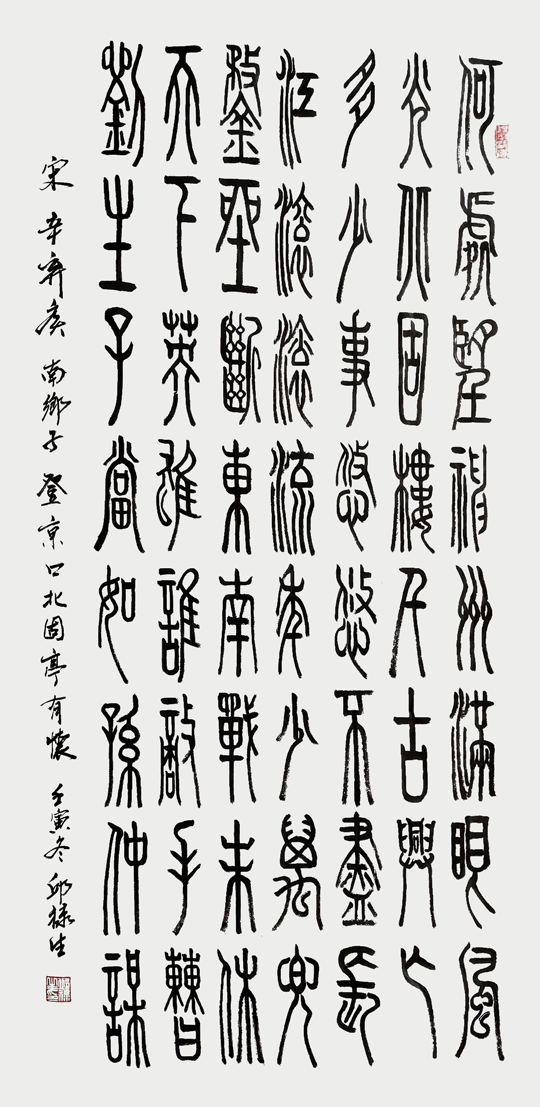 何處望神州滿眼風
光北固樓千古興亡
多少事悠悠不盡長
江滾滾流年少萬兜
鍪坐斷東南戰未休
天下英雄誰敵手曹
劉生子當如孫仲謀
宋辛弃疾南鄉子登京口北固亭有懷 壬寅冬邱禄生